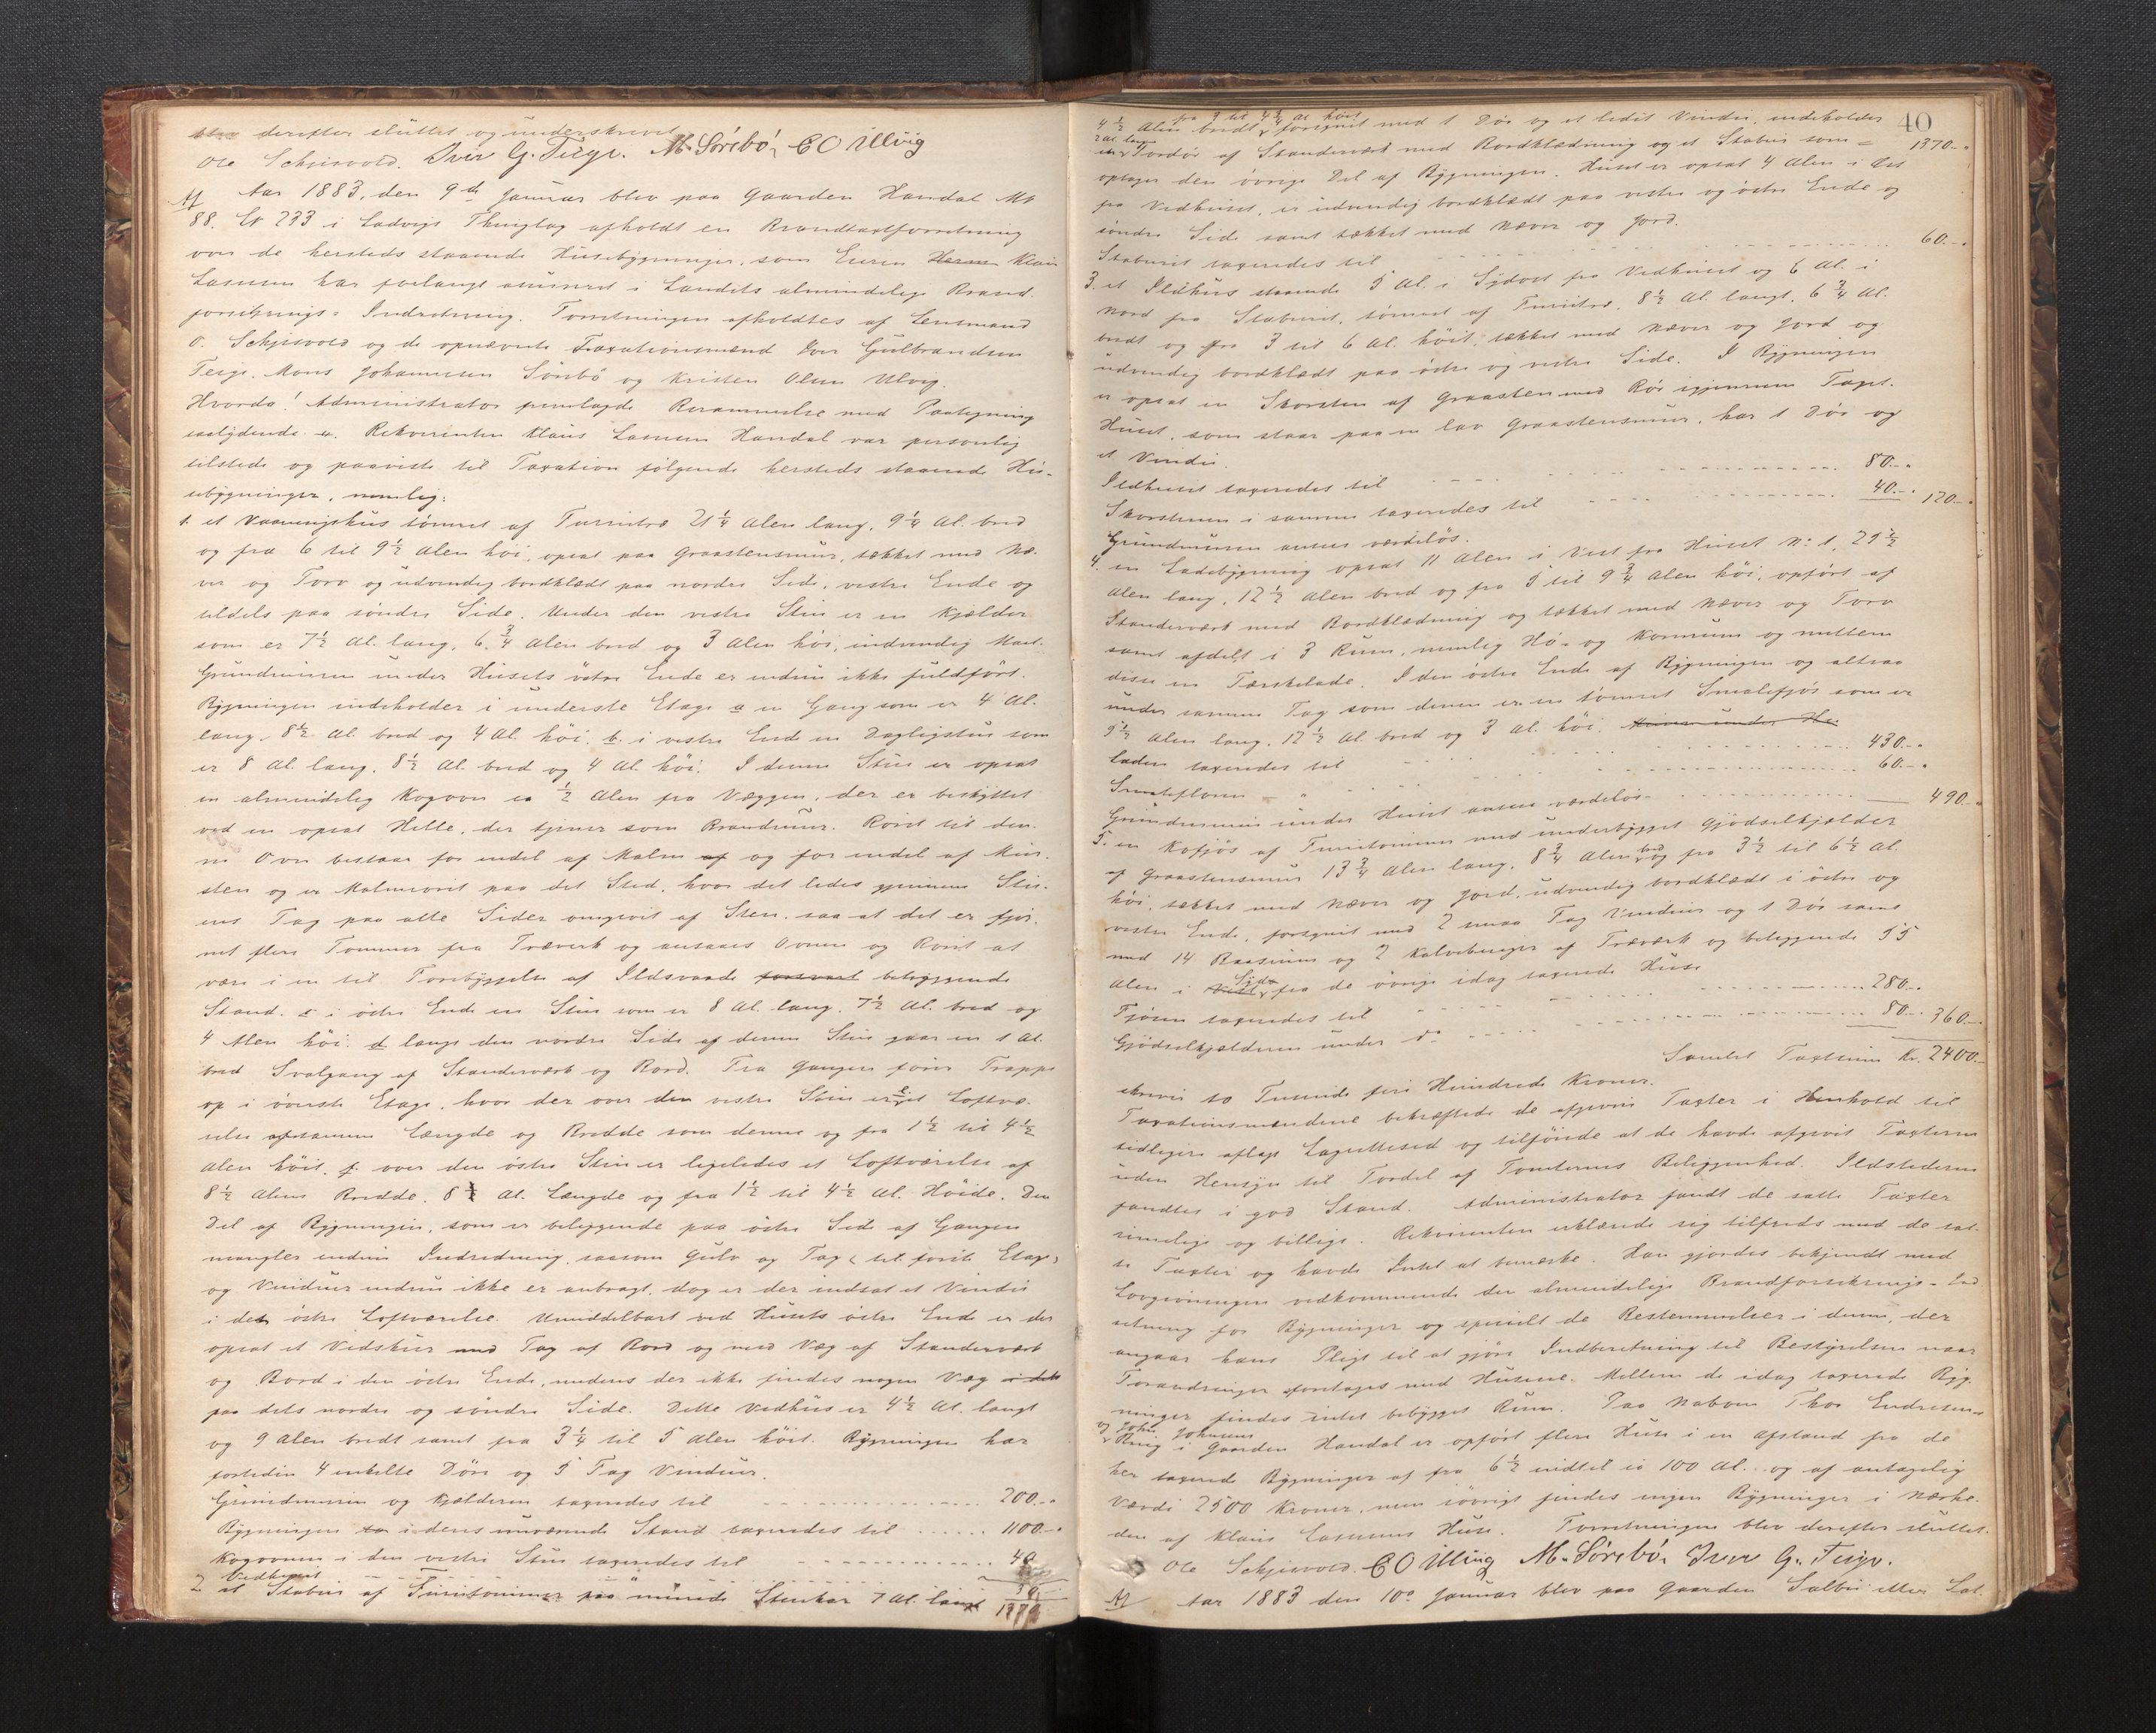 blev derefter sluttet og underskrevet
Ole Schjervold. Iver G. Teige. M. Sørebø, C O Ulvig
Aar 1883, den 9de Januar blev paa Gaarden Handal M№
88. L№ 233 i Ladvigs Thinglag afholdt en Brandtaxtforretning
over de hersteds staaende Husebygninger, som Eieren Klaus
Lassesen har forlangt assureret i Landets almindelige Brand-
forsikrings-Indretning. Forretningen afholdtes af Lensmand
O. Schjervold og de opnævnte Taxationsmænd Iver Gulbrandsen
Teige, Mons Johannesen Sørebø og Kristen Olsen Ulvig.
Hvorda! Administrator fremlagde Berammelse med Paategning
saalydende. Rekvirenten Klaus Lassesen Handal var personlig
tilstede og paaviste til Taxation følgende hersteds staaende Hu-
sebygninger, nemlig:
1. et Vaaningshus tømret af Furutræ 21 1/4 Alen lang, 9 1/4 Al. bred
og fra 6 til 9 1/2 Alen høi, opsat paa Graastensmur, tækket med Næ-
ver og Torv og udvendig bordklædt paa nordre Side, vestre Ende og
tildels paa søndre Side. Under den vestre Stue er en Kjælder
som er 7 1/2 Al. lang, 6 3/4 Alen bred og 3 Alen høi, indvendig Maal.
Grundmuren under Husets østre Ende er endnu ikke fuldført.
Bygningen indeholder i underste Etage a en Gang som er 4 Al.
lang, 8 1/2 Al. bred og 4 Al. høi. b. i vestre Ende en Dagligstue som
er 8 Al. lang, 8 1/2 Al. bred og 4 Al. høi. I denne Stue er opsat
en almindelig Kogovn ca 1/2 Alen fra Væggen, der er beskyttet
ved en opsat Helle, der tjener som Brandmur. Røret til den-
ne Ovn bestaar for endel af Malm og for endel af Mur-
sten og er Malmrøret paa det Sted, hvor det ledes gjennem Stu-
ens Tag paa alle Sider omgivet af Sten, saa at det er fjer-
net flere Tommer fra Træverk og ansaaes Ovnen og Røret at
være i en til Forebyggelse af Ildsvaade betryggende
Stand. c i østre Ende en Stue som er 8 Al. lang, 7 1/2 Al. bred og
4 Alen høi. d langs den nordre Side af denne Stue gaar en 1 Al.
bred Svalgang af Standerværk og Bord. Fra Gangen fører Trappe
op i øverste Etage, hvor der over den vestre Stue er e et Loftvæ-
relse af samme Længde og Bredde som denne og fra 1 1/2 til 4 1/2
Alen høit. f. over den østre Stue er ligeledes et Loftværelse af
8 1/2 Alens Bredde, 8 Al. Længde og fra 1 1/2 til 4 1/2 Al. Høide. Den
Del af Bygningen, som er beliggende paa østre Side af Gangen
mangler endnu Indredning, saasom Gulv og Tag (til første Etage)
og Vinduer endnu ikke er anbragt, dog er der indsat et Vindu
i det østre Loftværelse. Umiddelbart ved Husets østre Ende er der
opsat et Vedskur med Tag af Bord og med Væg af Standerværk
og Bord i den østre Ende, medens der ikke findes nogen Væg
paa dets nordre og søndre Side. Dette Vedhus er 4 1/2 Al. langt
og 9 Alen bredt samt fra 3 1/4 til 5 Alen høit. Bygningen har
fortiden 4 enkelte Døre og 5 Fag Vinduer.
Grundmuren og Kjælderen taxeredes til 200.-
Bygningen i dens nuværende Stand taxeredes til 1100.-
Kogovnen i den vestre Stue taxeredes til 40
Vedhuset 30
1370
2 et Stabur af Furutømmer paa murede Stenkar 7 Al. langt
40
4 1/2 Alen bredt fra 3 til 4 1/2 Al. høit forsynet med 1 Dør og et lidet Vindu, indeholder
1370.-
en 2 Al. lang Fordør af Standerværk med Bordklædning og et Stabur som
optager den øvrige Del af Bygningen. Huset er opsat 4 Alen i Øst
fra Vedhuset, er udvendig bordklædt paa vestre og østre Ende og
søndre Side samt tækket med Næver og Jord.
Staburet taxeredes til 60.-
3. et Ildhus staaende 5 Al. i Sydost fra Vedhuset og 6 Al. i
Nord fra Staburet, tømret af Furutræ, 8 1/2 Al. langt, 6 3/4 Al.
bredt og fra 3 til 6 Al. høit, tækket med Næver og Jord og
udvendig bordklædt paa østre og vestre Side. I Bygningen
er opsat en Skorsten af Graasten med Rør igjennem Taget.
Huset, som staar paa en lav Graastensmur, har 1 Dør og
et Vindu.
Ildhuset taxeredes til 80.-
Skorstenen i samme taxeredes til 40.- 120.-
Grundmuren ansees værdiløs.
4. en Ladebygning opsat 11 Alen i Vest fra Huset N: 1, 25 1/2
Alen lang, 12 1/2 Alen bred og fra 5 til 9 3/4 Alen høi, opført af
Standerværk med Bordklædning og tækket med Næver og Torv
samt afdelt i 3 Rum, nemlig Hø- og Kornrum og mellem
disse en Tærskelade. I den østre Ende af Bygningen og altsaa
under samme Tag som denne er en tømret Smalefjøs som er
5 1/2 Alen lang, 12 1/2 Al. bred og 3 Al. høi.
Laden taxeredes til 430.-
Smalefloren " 60.-
Grundmuren under Huset ansees værdiløs 490.-
5. en Kofjøs af Furutømmer med underbygget Gjødselkjælder
af Graastensmur 13 3/4 Alen lang, 8 3/4 Alen bred og fra 3 1/2 til 6 1/2 Al.
høi, tækket med Næver og Jord, udvendig bordklædt i østre og
vestre Ende, forsynet med 2 smaa Fag Vinduer og 1 Dør samt
med 14 Baasrum og 2 Kalvebinger af Træværk og beliggende 55
Alen i Syd fra de øvrige idag taxerede Huse
Fjøsen taxeredes til 280.-
Gjødselkjælderen under do 80.- 360.-
Samlet Taxtsum Kr. 2400.-
skriver to Tusinde fire Hundrede Kroner.
Taxationsmændene bekræftede de afgivne Taxter i Henhold til
tidligere aflagt Lagrettesed og tilføiede at de havde afgivet Taxterne
uden Hensyn til Fordel af Tomternes Beliggenhed. Ildstederne
fandtes i god Stand. Administrator fandt de satte Taxter
rimelige og billige. Rekvirenten erklærede sig tilfreds med de sat-
te Taxter og havde Intet at bemærke. Han gjordes bekjendt med
Lovgivningen vedkommende den almindelige Brandforsikrings-Ind
retning for Bygninger og specielt de Bestemmelser i denne, der
angaar hans Pligt til at gjøre Indberetning til Bestyrelsen naar
Forandringer foretages med Husene. Mellem de idag taxerede Byg-
ninger findes intet bebygget Rum. Paa Naboen Thor Endresens
og Johs. Johnsens Brug i Gaarden Handal er opført flere Huse i en Afstand fra de
her taxerede Bygninger af fra 6 1/2 indtil ca 100 Al. og af antagelig
Værdi 2500 Kroner, men iøvrigt findes ingen Bygninger i Nærhe-
den af Klaus Lassesens Huse. Forretningen blev derefter sluttet.
Ole Schjervold. C O Ulvig M. Sørebø. Iver G. Teige.
Aar 1883 den 10de Januar blev paa Gaarden Sælbu eller Sal-